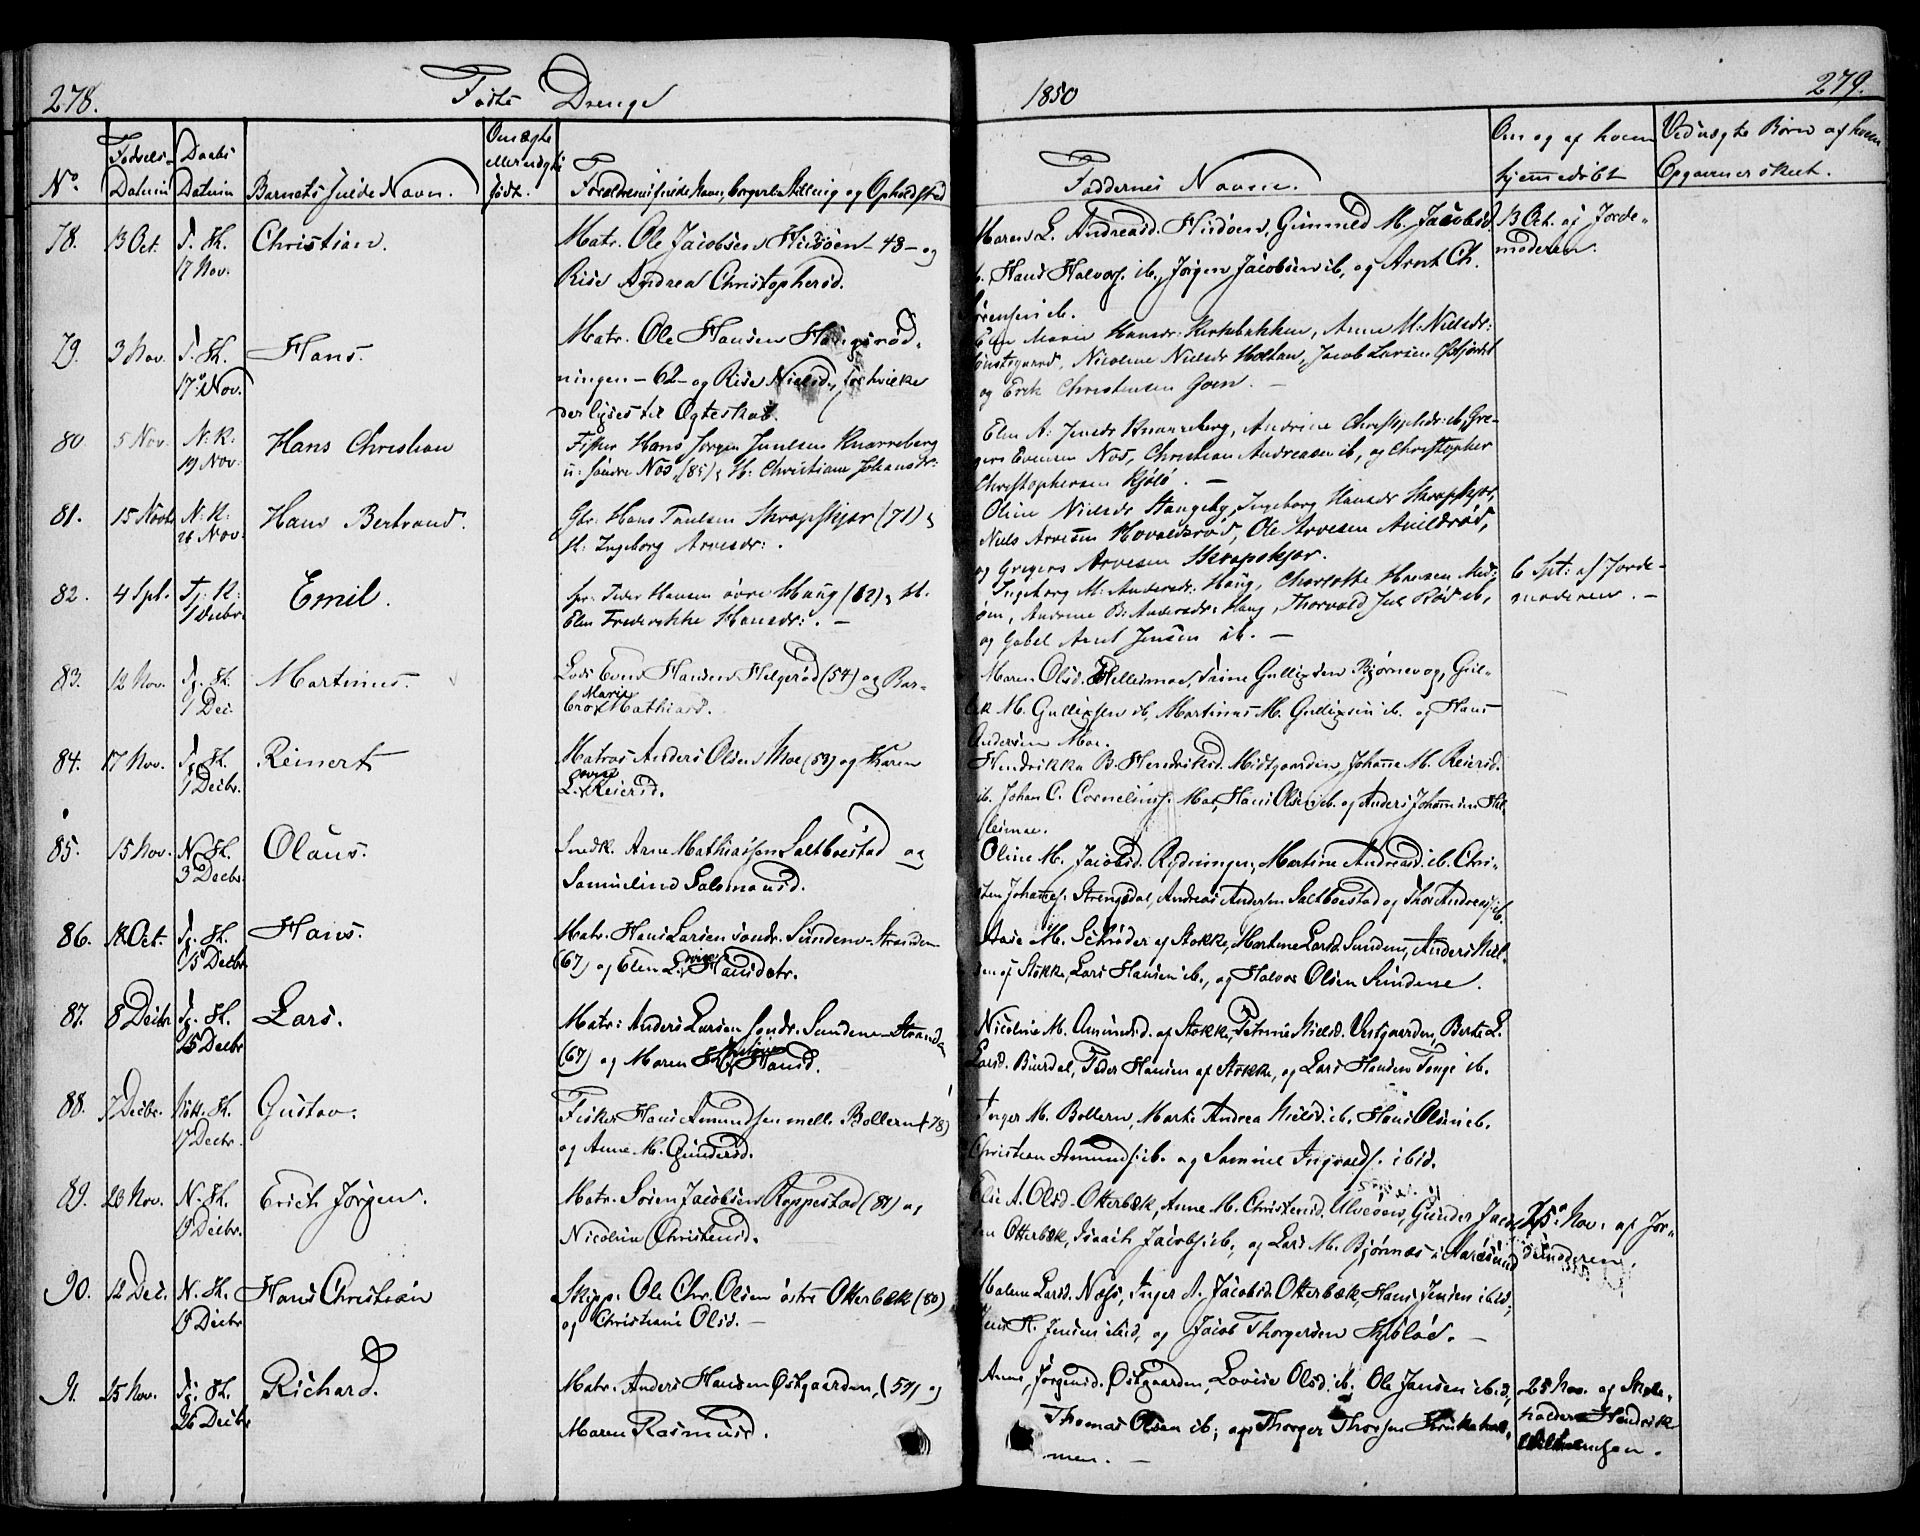 278.
Fødte Drenge
1850
279.
No.
Fødsels-
Datum
Daabs
Datum
Barnets fulde Navn.
Om ægte
eller uægte
født.
Forældrenes fulde Navn, borgerlig Stilling og Opholdssted
Faddernes Navne.
Om og af hvem
hjemmedøbt
Ved uægte Børn af hvem
Opgaven er skeet.
78.
13 Oct.
17 Nov.
Christian.
Matr. Ole Jacobsen Hudøen - 43 - og
Rise Andrea Christophersd.
Maren L. Andreasd. Hudøen, Gunnild M. Jacobsd
Hans Halvors. ib., Jørgen Jacobsen ib, og Arnt Ch.
ørensen ib.
13 Oct. af Jorde-
moderen.
79.
3 Nov.
17 Nov.
Hans.
Matr. Ole Hansen
ningen - 62 - og Rise Nielsd., for hvilke
der lyses til Ægteskab.
Maria Hansdr: Kirkebakken, Anne M: Nielsdr:
Nicoline Nielsdr Holtan, Jacob Larsen
og Erik Christensen Goen. -
80.
5 Nov.
N: K:
19 Nov:
Hans Christian
Fisker Hans Jørgen Juulsen Knarreberg
u: søndre Nøs (85) & H: Christiane Johansdr:
Elen A: Jensdr Knarreberg, Andrine Christophdr: ib, Gre-
gers Evensen Nøs, Christian Andreasen ib, og Christopher
Christophersen Kjølø. -
81.
15 Novb
N: K:
26 Nov:
Hans Bertrand.
Gbr: Hans Paulsen Skrapskjær (71) &
H: Ingeborg Arvesdr: .
Oline Nielsdr Stangeby, Ingeborg Hansdr Skrapskjær,
Niels Arvesen Hovaldsrød, Ole Arvesen
og Gregers Arvesen Skrapskjær.
82.
4 Spt.
Tj: K:
1 Decbr.
Emil.
Peder Hansen øvre Haug (62) & H.
Elen Frederikke Hansdr: . -
Ingeborg M: Andersdr: Haug, Charlotte Hansen Med-
øen, Andrine B: Andersdr: Haug, Thorvald Juel Rød ib,
og Gabel Arnt Jensen ib. -
6 Spt: af Jorde-
moderen. -
83.
12 Nov.
Tj. K.
1 Dec.
Martinus.
Lods Even Hansen Helgerød (54) og Bar-
bro Marie Mathiasd.
Maren Olsd. Hellesmoe, Trine Gullixsen Bjørnevog, Gul-
ik M. Gullixsen ib, Martinus M. Gullixsen ib. og Hans
Andersen Moe.
84.
17 Nov.
Tj. K.
1 Decbr.
Reinert
Matros Anders Olsen Moe (53) og Karen
Lovise Reiersd.
Hendrikka B. Hendriksd. Midtgaarden, Johanne M. Reiersd.
ib. Johan C. Corneliuss. Moe, Hans Olsen ib. og Anders Johannsen Hel-
lesmoe.
85.
15 Nov.
N. K.
3 Decbr.
Olaus.
Snedk. Arne Mathiassen Saltboestad og
Samueline Salomonsd.
Oline M. Jacobsd. Rydningen, Martine Andreasd. ib. Chri-
sten Johans. Strengsdal, Andreas Andersen Saltboestad og Thor Andreas. ib.
86.
18 Oct.
Tj. K.
15 Decbr
Hans.
Matr. Hans Larsen søndr. Sundene-Stranden
(67) og Elen Lovise Hansdtr.
Aase M. Schrøder af Stokke, Martine Larsd. Sundene, Anders Niel-
sen af Stokke, Lars Hansen ib., og Halvor Olsen Sundene.
87.
8 Decbr
Tj. K.
15 Decbr
Lars.
Matr: Anders Larsen søndr. Sundene Strande
(67) og Maren Hansd.
Nicoline M. Amundsd. af Stokke, Petrine Nielsd. Vestgaarden, Berte L.
Larsd. Buerdal, Peder Hansen af Stokke, og Lars Hansen Tonge ib.
88.
7 Decbr.
Nøtt. K.
17 Decbr.
Gustav.
Fisker Hans Amundsen mell. Bollern (78)
og Anne M. Gundersd.
Inger M. Bollern, Marte Andrea Nielsd. ib. Hans Olsen ib.
Christian Amunds. ib. og Samuel Ingvalds. ibid.
89.
20 Nov.
N. K.
19 Decbr.
Erich Jørgen.
Matr. Søren Jacobsen Roppestad (81) og
Nicoline Christensd.
Elie A. Olsd. Otterbæk, Anne M. Christensd. Ulveøen, Gunder Jacob-
sen Otterbæk, Isaach Jacobs. ib, og Lars M. Bjørnæs i Aarøsund
25 Nov. af Jor-
demoderen.
90.
12 Dec.
N. K.
19 Decbr
Hans Christian
Skipp. Ole Chr. Olsen østre Otterbæk (80),
og Christiane Olsd. -
Malene Larsd. Næss, Inger A. Jacobsd. Otterbæk, Hans Jensen ibid,
H. Jensen ibid, og Jacob Thorgersen Kjølød. -
91.
15 Nov.
Tj. K.
26 Decbr
Richard.
Matr. Anders Hansen Østgaarden, (57) og
Maren Rasmusd.
Anne Jørgensd. Østgaarden, Lovise Olsd. ib, Ole Jansen ibid,
Thomas Olsen ib, og Thorger Thorsen
men. -
25 Nov. af Skole-
holder Hendrik
Wilhelmsen.